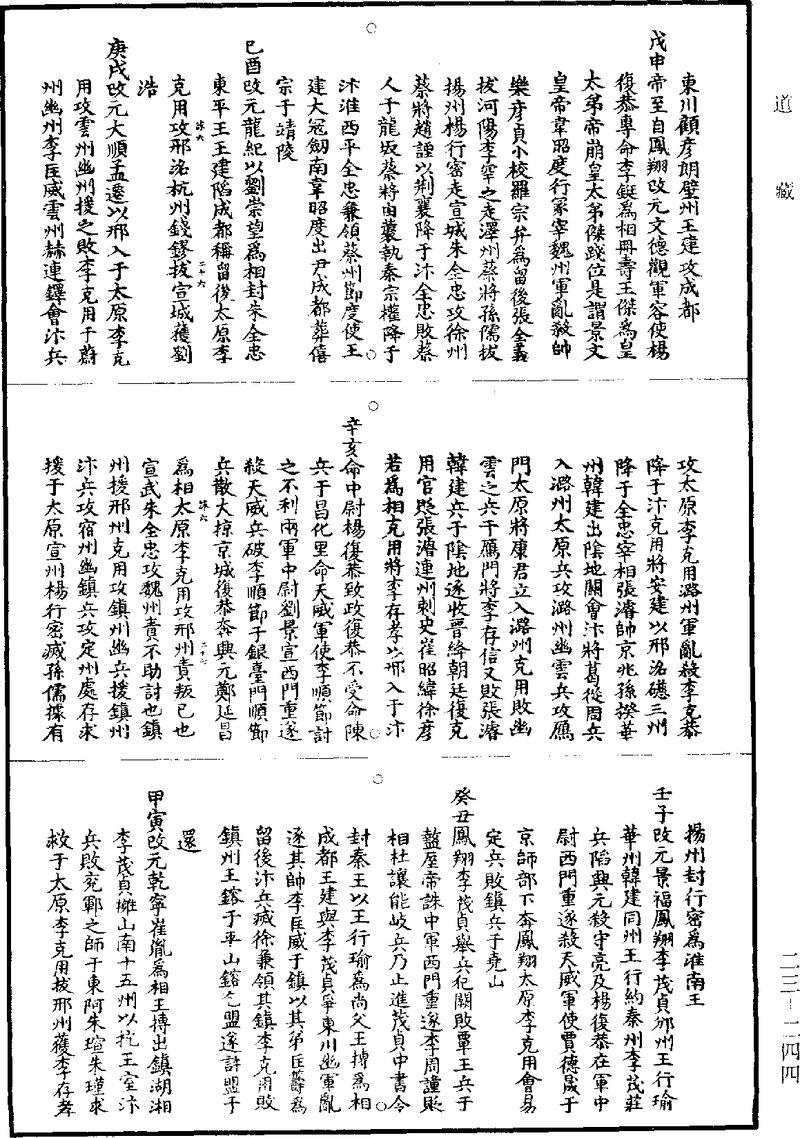 道藏
東川顧彥朗壁州王建攻成都
戊申帝至自鳳翔改元文德觀軍容使楊
復恭專命李鋌爲相冊壽王傑爲皇
太弟帝崩皇太弟傑踐位是謂景文
皇帝韋昭度行冢宰魏州軍亂殺帥
樂彥貞小校羅宗弁爲留後張全義
拔河陽李罕之走澤州蔡將孫儒拔
揚州楊行密走宣城朱全忠攻徐州
蔡將趙諲以荆襄降于汴全忠敗蔡
人于龍坂蔡將申叢執秦宗權降于
汴淮西平全忠兼領蔡州節度使王
建大寇劒南韋昭度出尹成都葬僖
宗于靖陵
己酉改元龍紀以劉崇望爲相封朱全忠
東平王王建陷成都稱留後太原李
克用攻邢洺杭州錢鏐拔宣城獲劉
浩
庚戌改元大順孟遷以邢入于太原李克
用攻雲州幽州援之敗李克用于蔚
州幽州李匡威雲州赫連鐸會汴兵
攻太原李克用潞州軍亂殺李克恭
降于汴克用將安建以邢洺磁三州
降于全忠宰相張濬帥京兆孫揆華
州韓建出陰地關會汴將葛從周兵
入潞州太原兵攻潞州幽雲兵攻鴈
門太原將康君立入潞州克用敗幽
雲之兵于鴈門將李存信又敗張濬
韓建兵于陰地遂收晉絳朝廷復克
用官貶張濬連州刺史崔昭緯徐彥
若爲相克用將李存孝以邢入于汴
辛亥命中尉楊復恭致政復恭不受命陳
兵于昌化里命天威軍使李順節討
之不利兩軍中尉劉景宣西門重遂
殺天威兵破李順節于銀臺門順節
兵散大掠京城復恭奔興元鄭延昌
爲相太原李克用攻邢州責叛已也
宣武朱全忠攻魏州責不助討也鎮
州援邢州克用攻鎮州幽兵援鎮州
汴兵攻宿州幽鎮兵攻定州處存求
援于太原宣州楊行密滅孫儒據有
揚州封行密爲淮南王
壬子改元景福鳳翔李茂貞邠州王行瑜
華州韓建同州王行約秦州李茂莊
兵陷興元殺守亮及楊復恭在軍中
尉西門重遂殺天威軍使賈德晟于
京師部下奔鳳翔太原李克用會易
定兵敗鎮兵于堯山
癸丑鳳翔李茂貞舉兵犯闕敗覃王兵于
盩厔帝誅中軍西門重遂李周諲貶
相杜讓能岐兵乃止進茂貞中書令
封秦王以王行瑜爲尚父王摶爲相
成都王建與李茂貞爭東川幽軍亂
逐其帥李匡威于鎮以其弟匡籌爲
留後汴兵滅徐兼領其鎮李克用敗
鎮州王鎔于平山鎔乞盟遂許盟于
還
甲寅改元乾寧崔胤爲相王摶出鎮湖湘
李茂貞擁山南十五州以抗王室汴
兵敗兖鄆之師于東阿朱瑄朱瑾求
救于太原李克用拔邢州獲李存孝
二三—二四四